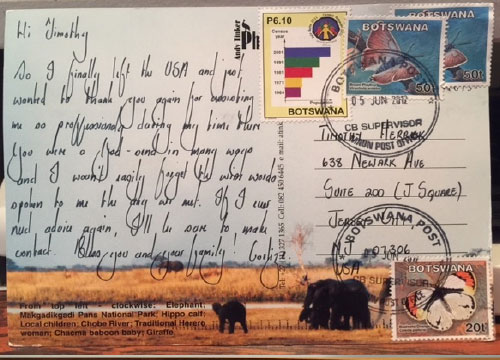 Hi Timothy
So I finally left the USA and just
wanted to thank you again for assisting
me so professionally during my time there
You were a God-send in many ways
and I won't easily forget the wise words
spoken to me the day we met. If I ever
need advice again, I'll be sure to make
contact. Bless you and your family!
From top left - clockwise: Elephant;
Makgadikgadi Pans National Park; Hippo calf;
Local children; Chobe River; Traditional Herero
woman; Chacma baboon baby; Giraffe
Andy Tinker
Ph
P6.10
Census
year
2001
1991
1981
1971
1964
Population
BOTSWANA
BOTSWANA
50t
BOTSWANA
50t
BOTSWANA
05 JUN 2012
CB SUPERVISOR
COMMON POST OFFICE
TIMOTHY
638 NEWARK AVE
SUITE 200 (J SQUARE)
JERSEY CITY
NJ 07306
USA
BOTSWANA POST
CB SUPERVISOR
BOTSWANA
20t